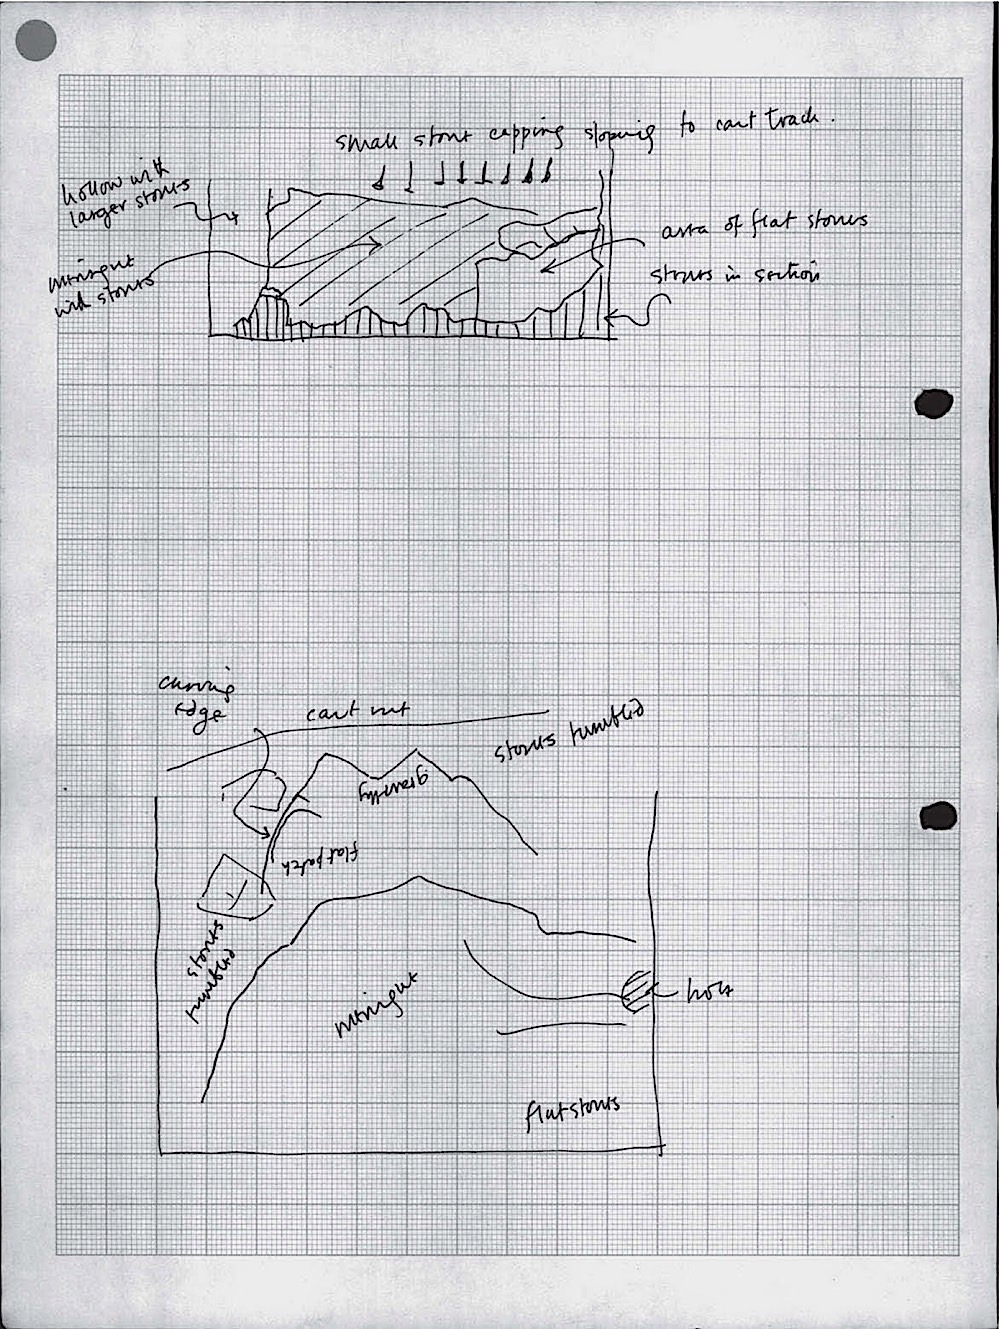 small stone capping sloping to cart track.
hollow with
larger stones
area of flat stones
with stones
stones in section
curving
edge
cart rut
stones tumbled
gravelly
flat patch
stones
tumbled
hole
flat stones